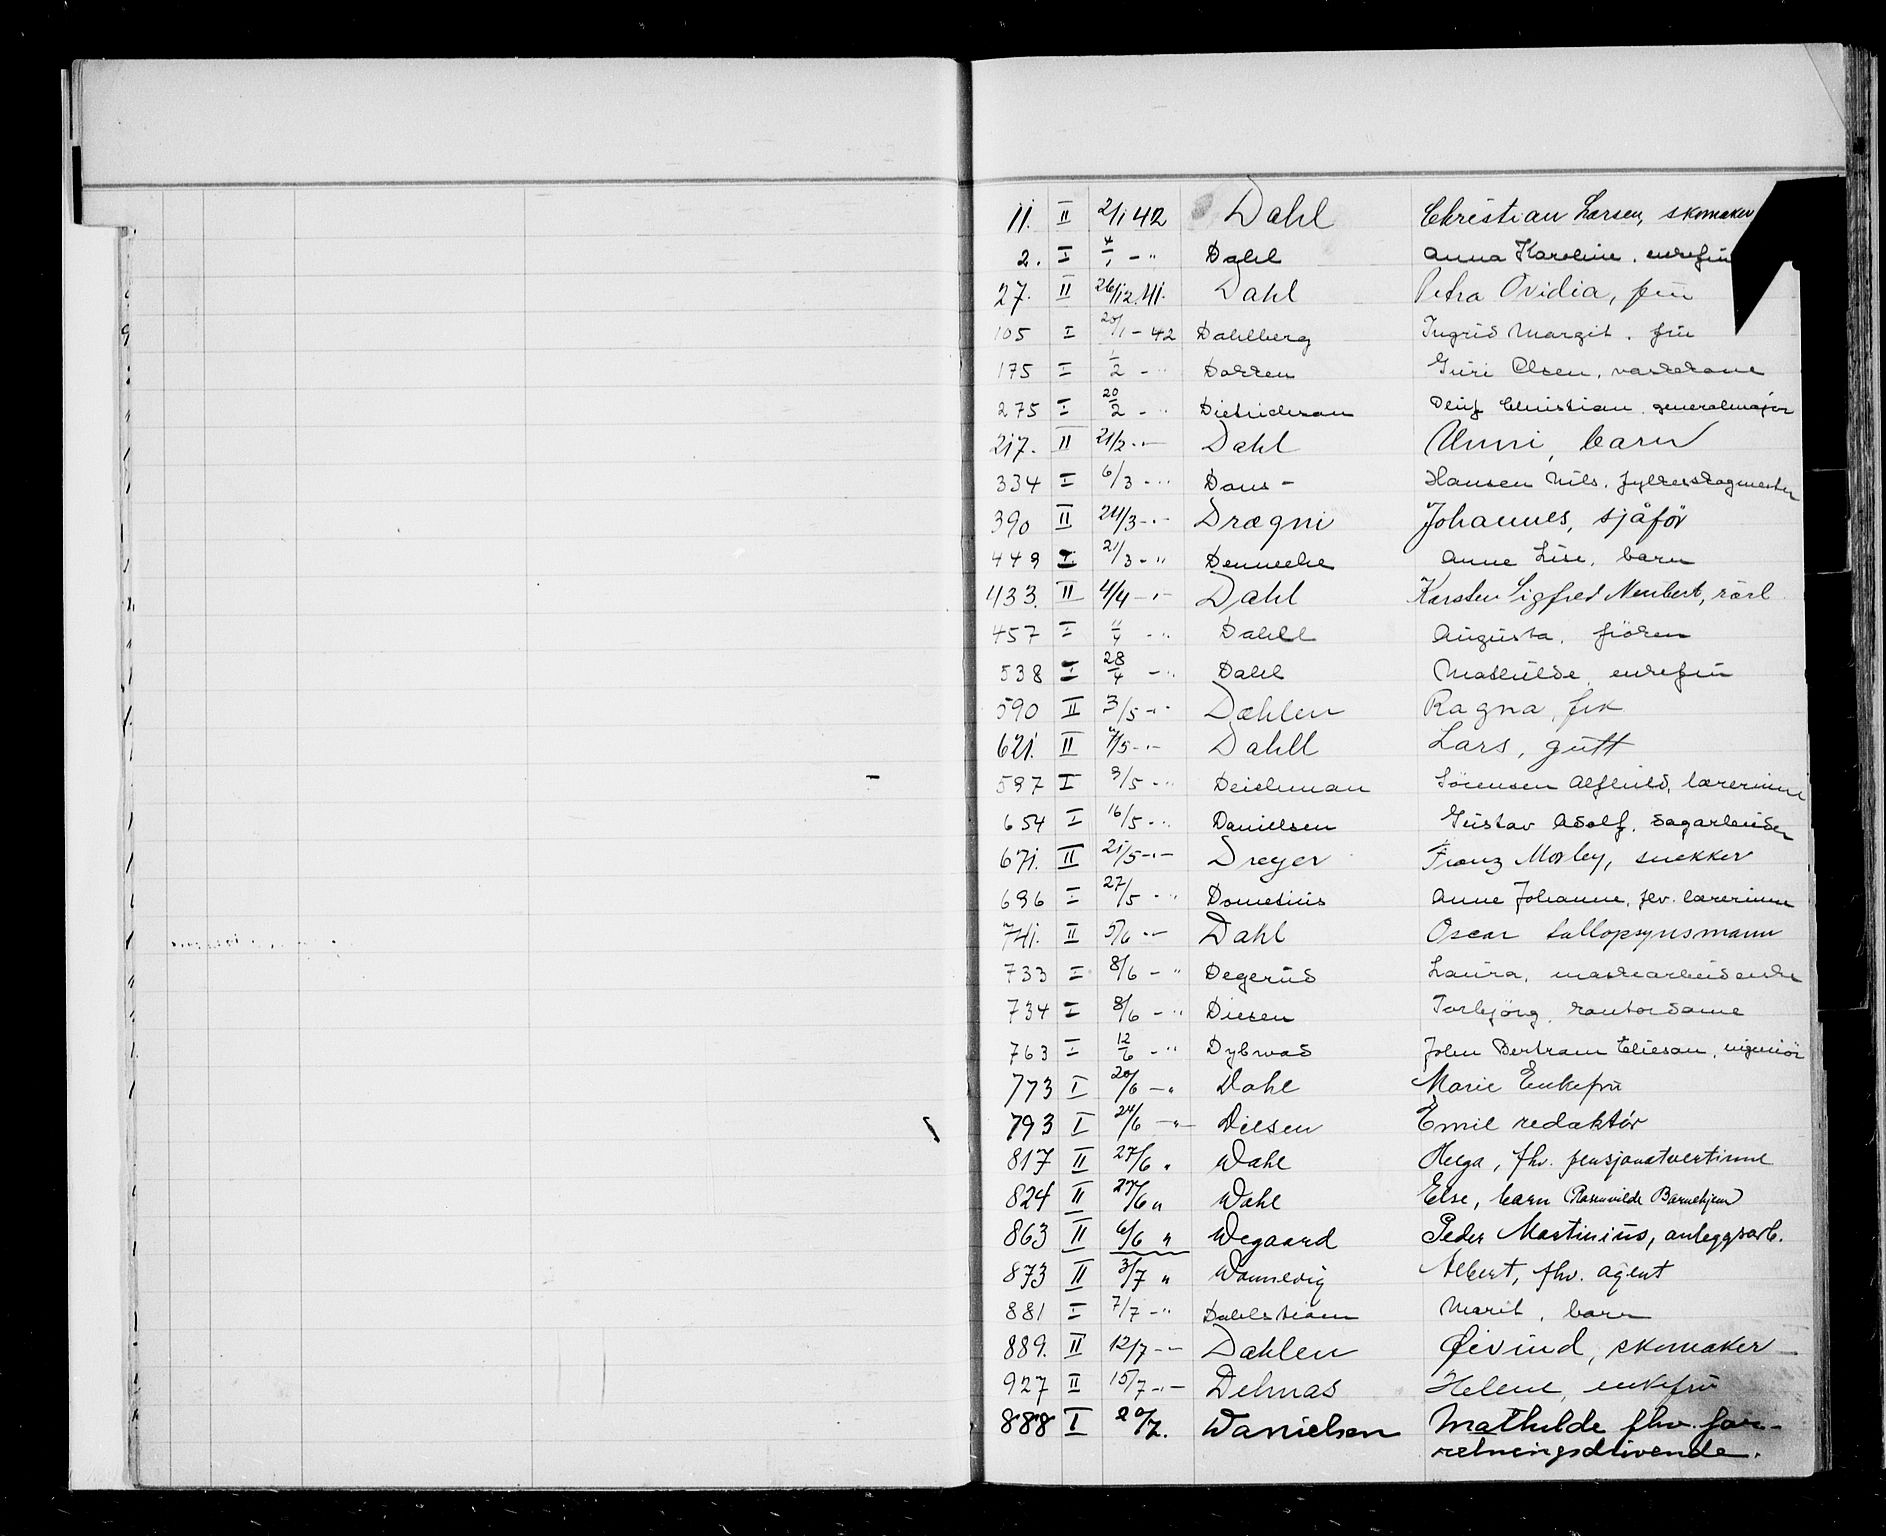 11. II 2/1 42 Dahl Christian Larsen, skomaker
2. I 4/1 - " Dahl Anna Karoline, enkefru
27. II 26/12.41. Dahl Petra Ovidia, fru
105 I 20/1 - 42 Dahlberg Ingrid Margit. fru
175 I 1/2 - " Dokken Guri Olsen, vaskekone
275 I 20/2 - " Dietrichson Oluf Christian, generalmajor
217. II 21/2 - " - Dahl Unni, barn
334 I 6/3 - " Dons - Hansen Nils. fylkesskogmester
390 II 24/3 - " - Drægni Johannes, sjåfør
449 I 21/3 - " Denneche Anne Lise, barn
433. II 4/4 - " - Dahl Karsten Sigfred Neubert, rørl
457 I 11/4 - " Dahll Augusta, frøken
538 I 28/4 - " Dahl Mathilde, enkefru
590 II 3/5 - " - Dæhlen Ragna, frk
621. II 7/5 - " - Dahll Lars, gutt
597 I 9/5 - " Deichman Sørensen Alfhild, lærerinne
654 I 16/5 - " Danielsen Gustav Adolf. sagarbeider
671. II 21/5 - " - Dreyer Franz Morley, snekker
696 I 27/5 - " Dometius Anne Johanne, fhv. lærerinne
741. II 5/6 - " - Dahl Oscar hallopsynsmann
733 I 8/6 - " Degerud Laura, maskearbeiderske
734 I 8/6 - " Diesen Torbjørg, kontordame
763 I 12/6 - " Dybwad John Bertram Elieson, ingeniør
773 I 20/6 - " Dahl Marie Enkefru
793 I 24/6 - " - Diesen Emil redaktør
817 II 27/6 " Dahl Helga, fhv. pensjonatvertinne
824 II 27/6 " Dahl Else, barn (Rosenvilde Barnehjem)
863 II 6/6 " Degaard Peder Martinius, anleggsarb.
873 II 3/7 " Dannevig Albert, fhv. agent
881 I 7/7 - " Dahlstrøm Marit, barn
889. II 12/7 - " - Dahlen Øivind, skomaker
927 II 15/7 - " - Delmas Helene, enkefru
888 I 20/7. Danielsen Mathilde fhv. for-
retningsdrivende.